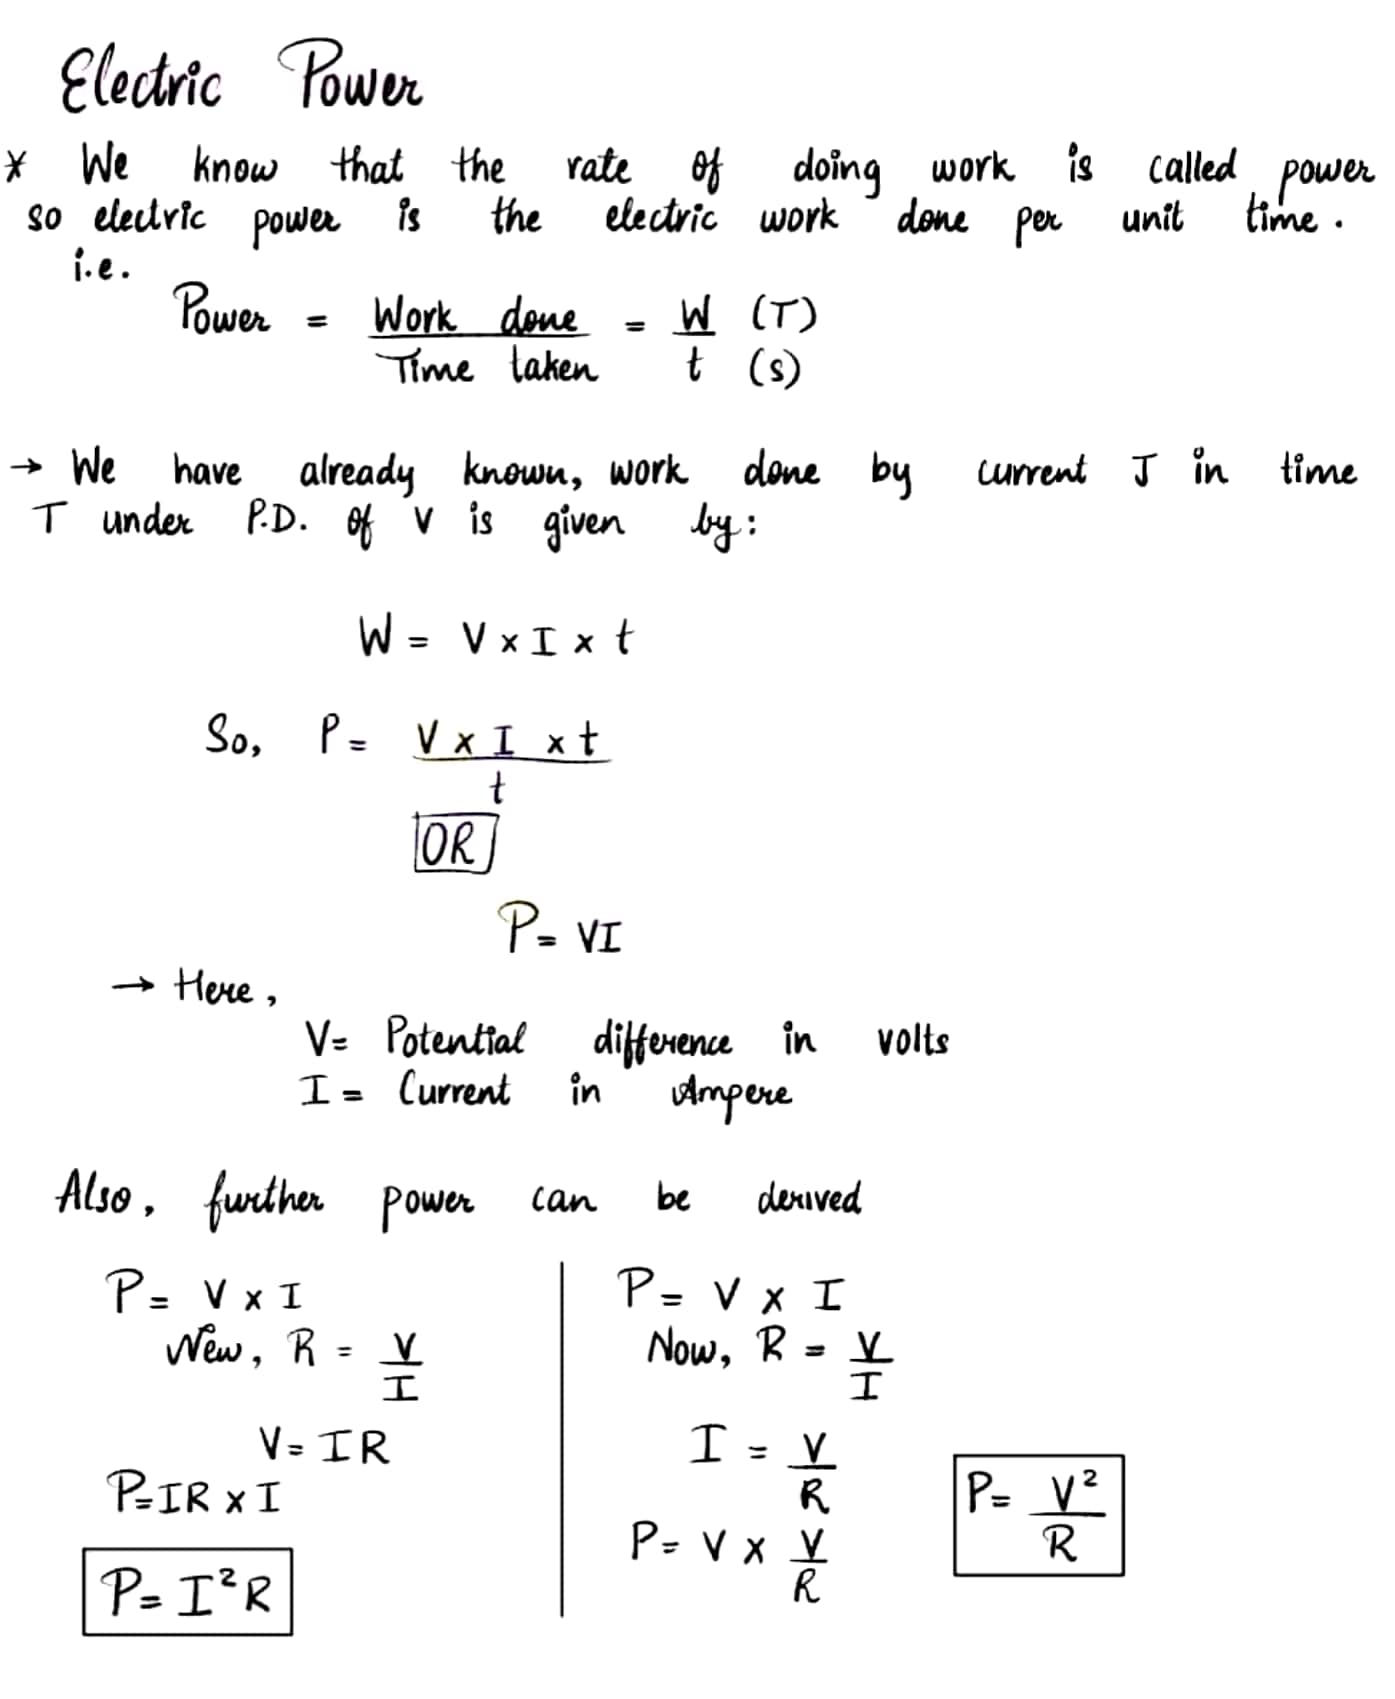 Electric Power
* We know that the rate of doing work is called power
so electric power is the electric work done per unit time.
i.e.
Power = Work done / Time taken = W (T) / t (s)
→ We have already known, work done by current J in time
T under P.D. of V is given by:
W = V x I x t
So, P = V x I x t / t
OR
P = VI
→ Here,
V = Potential difference in volts
I = Current in Ampere
Also, further power can be derived
P = V x I
New, R = V / I
V = IR
P = IR x I
P = I²R
P = V x I
Now, R = V / I
I = V / R
P = V x V / R
P = V² / R